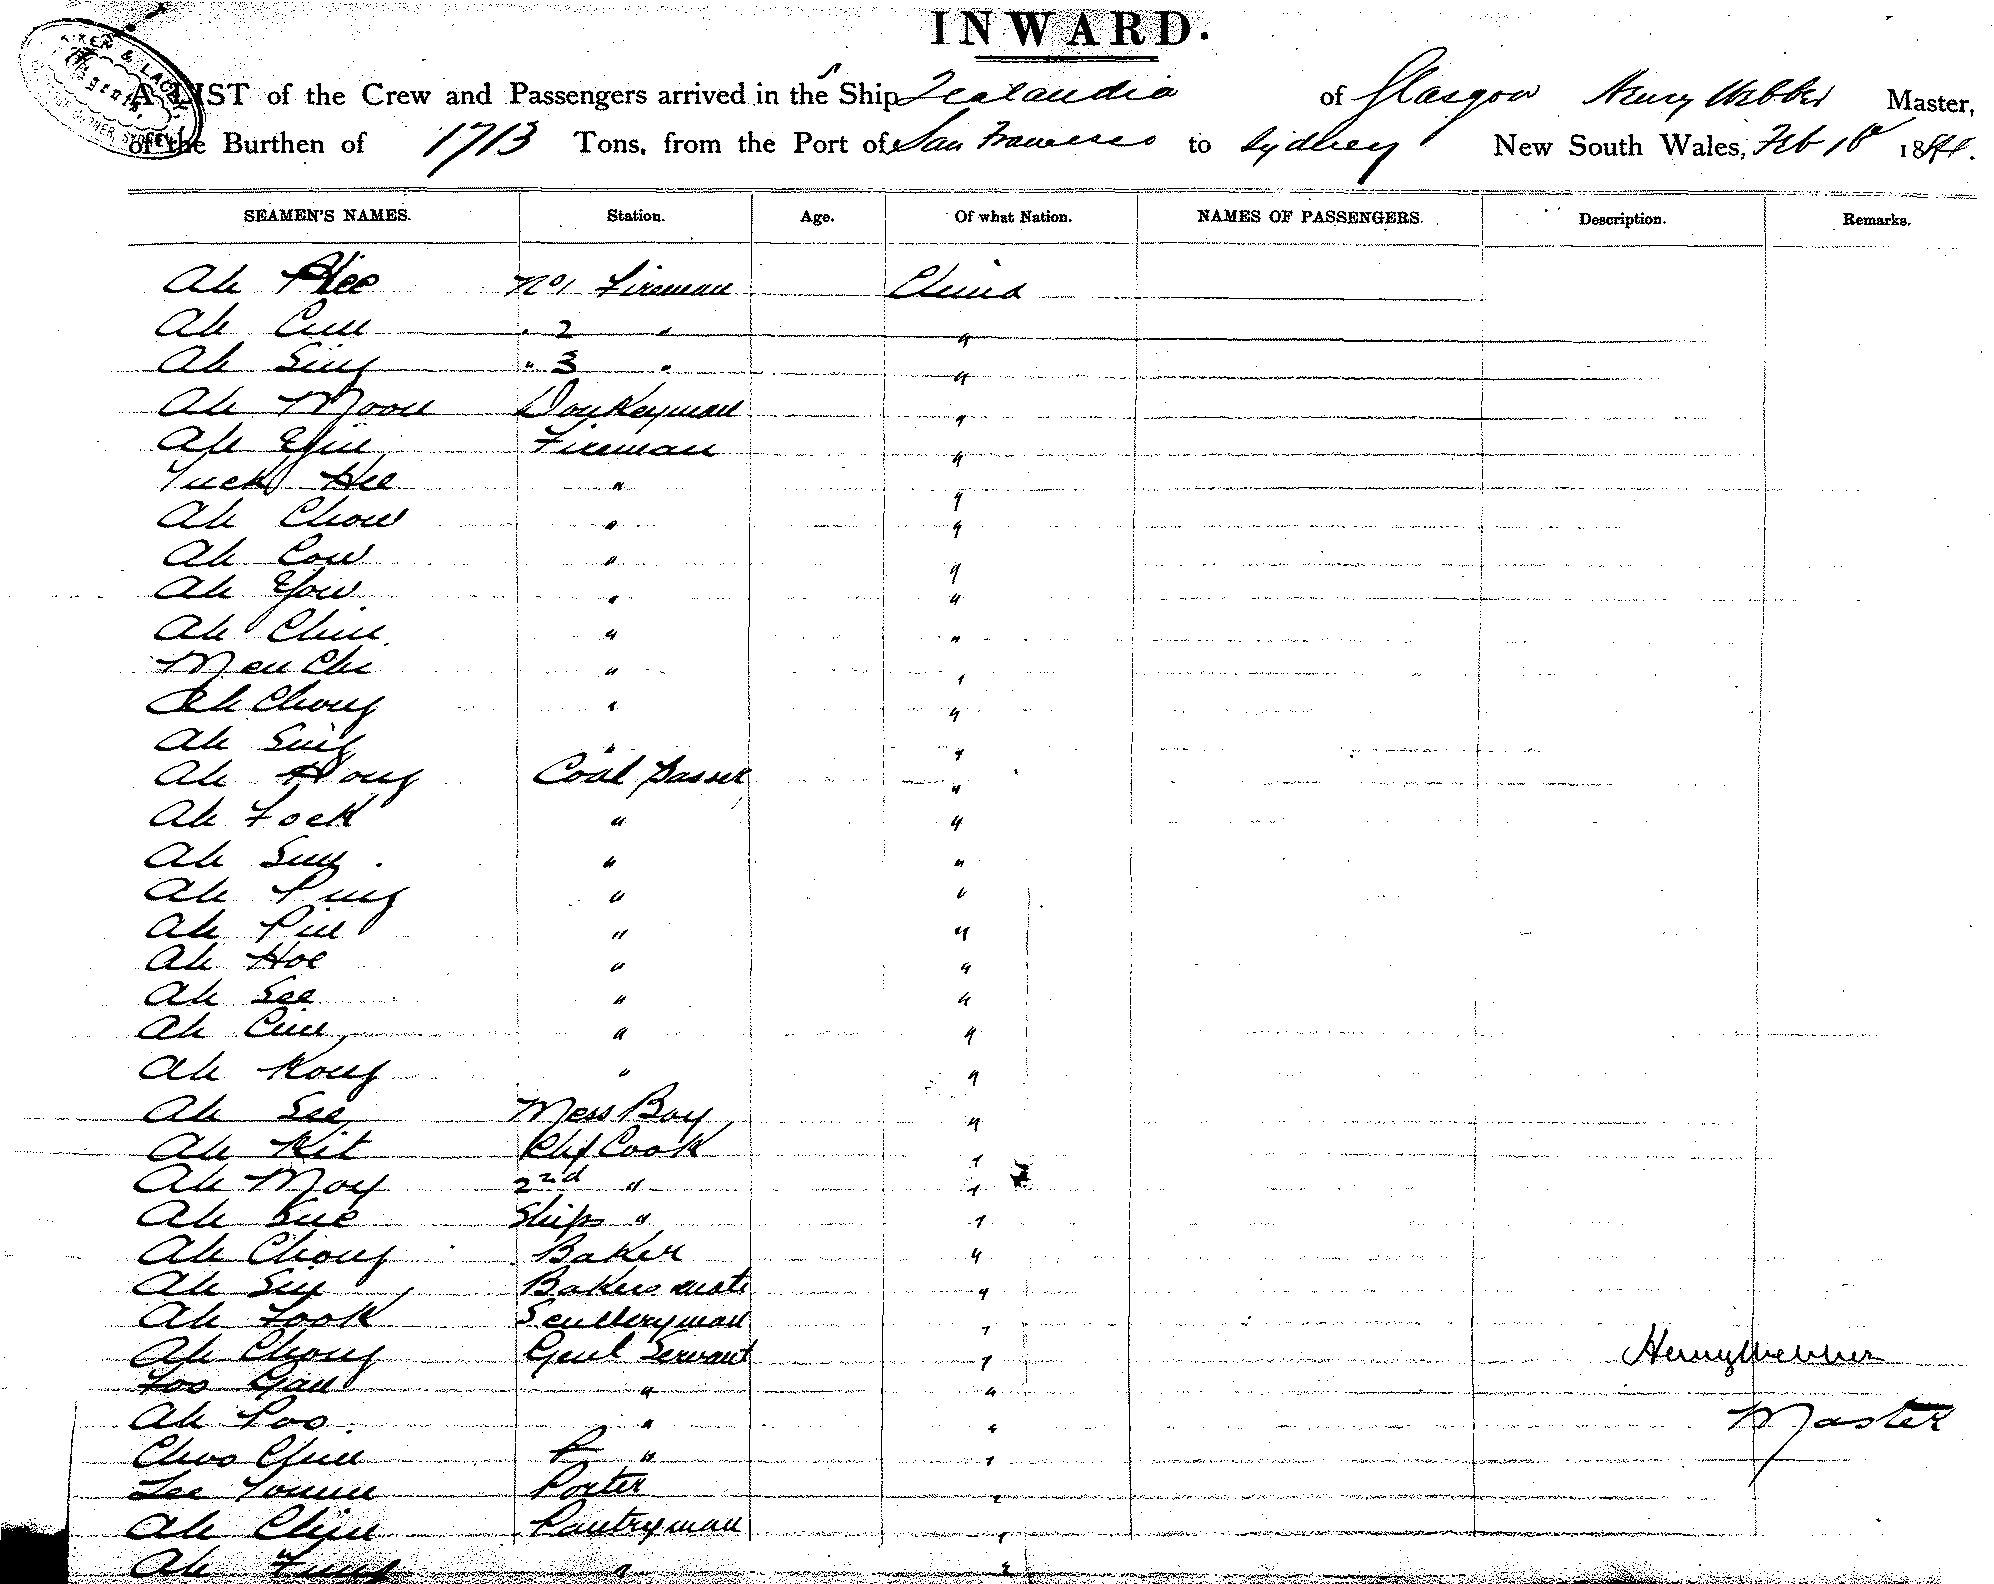 INWARD.
A LIST of the Crew and Passengers arrived in the Ship Zealandia of Glasgow Henry Webber Master,
of the Burthen of 1713 Tons, from the Port of San Francisco to Sydney New South Wales, Feb 18
SEAMEN'S NAMES. Station. Age. Of what Nation. NAMES OF PASSENGERS. Description. Remarks.
Ah No 1 Fireman China
Ah " 2 " "
Ah Sing " 3 " "
Ah Moon Donkeyman "
Ah Fireman "
Tuck Hee " "
Ah Chow " "
Ah Cow " "
Ah Yow " "
Ah Chin " "
Men Chi " "
Ah Chong " "
Ah Sing " "
Ah Hong Coal Passer "
Ah Fock " "
Ah " "
Ah Ping " "
Ah Pin " "
Ah Hoe " "
Ah See " "
Ah " "
Ah Kong " "
Ah See Mess Boy "
Ah Kit Chf Cook "
Ah Moy 2nd " "
Ah Sue Ships " "
Ah Chong Baker "
Ah Bakers mate "
Ah Fook Sculleryman "
Ah Chong Genl Servant "
Henry Webber
" "
Ah " "
Master
Choo " "
Lee Porter "
Ah Pantryman "
Ah " "